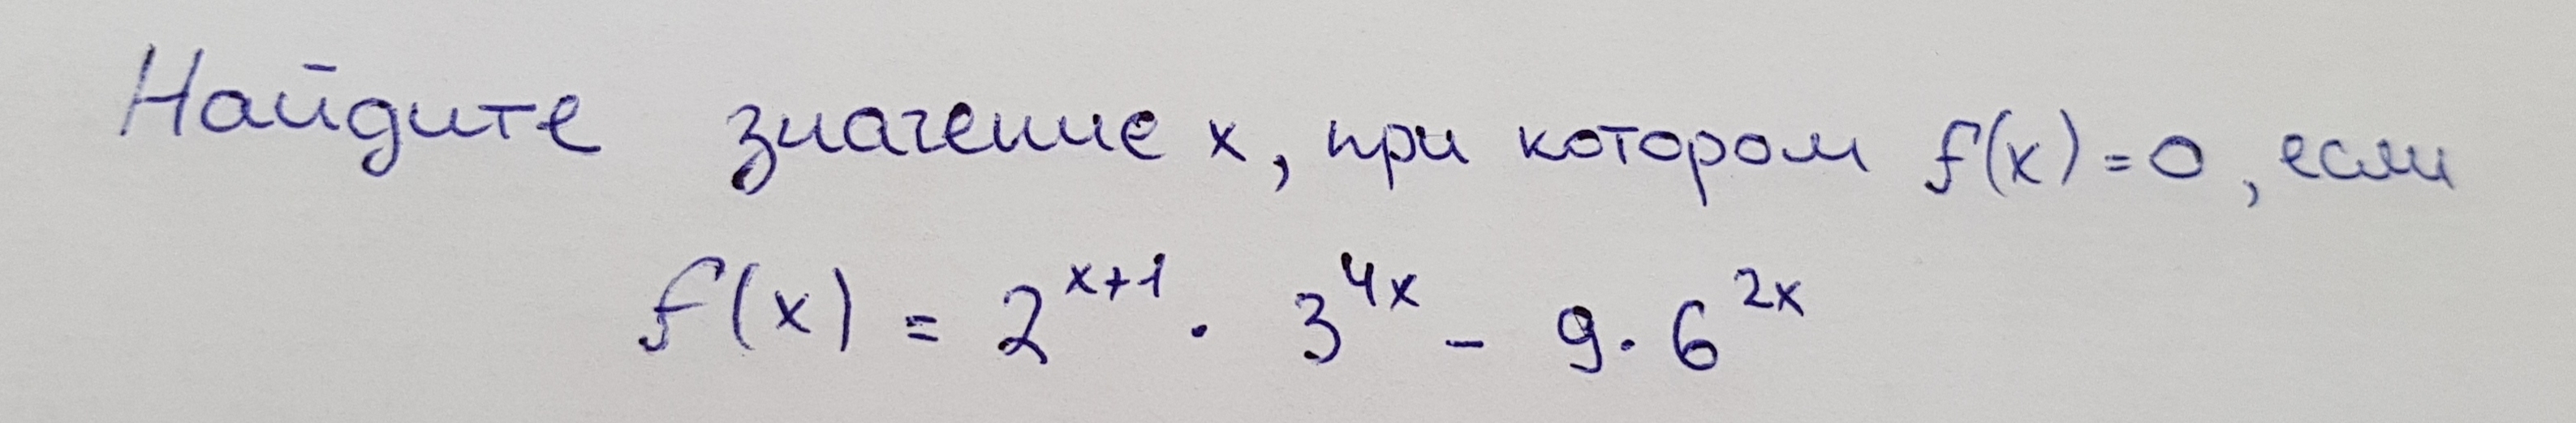 Найдите значение x, при котором f(x)=0, если
f(x) = 2^{x+1} · 3^{4x} - 9 · 6^{2x}